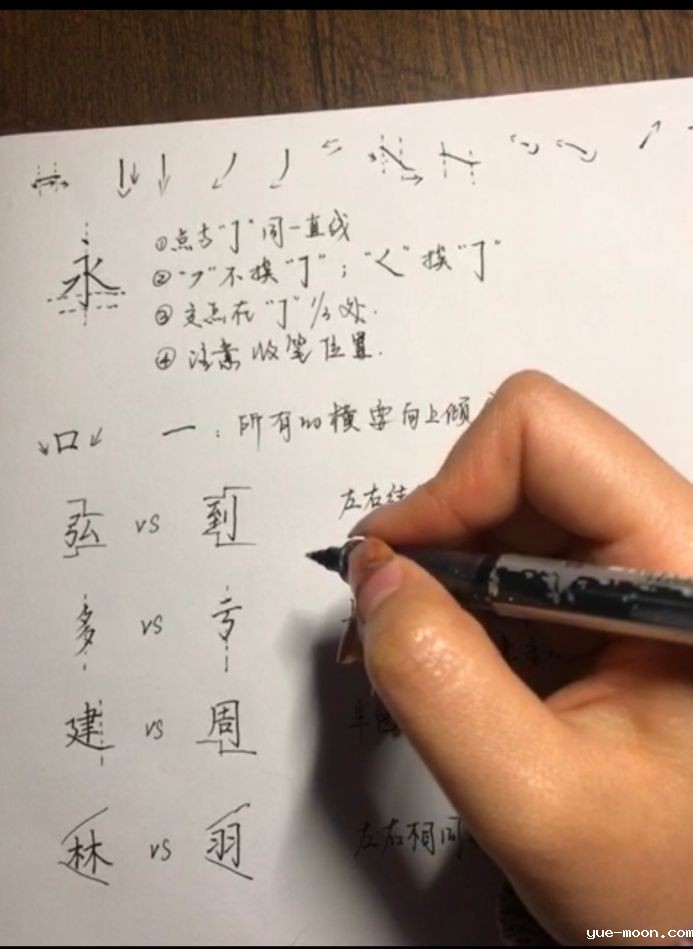 永
①点与"亅"同一直线
②"フ"不挨"亅"；"く"挨"亅"
③支点在"亅"1/3处.
④注意收笔位置.
口 一：所有的横要向上倾
弘 vs 到 左右结
多 vs 亨
建 vs 周 半
林 vs 羽 左右相同
yue-moon.com